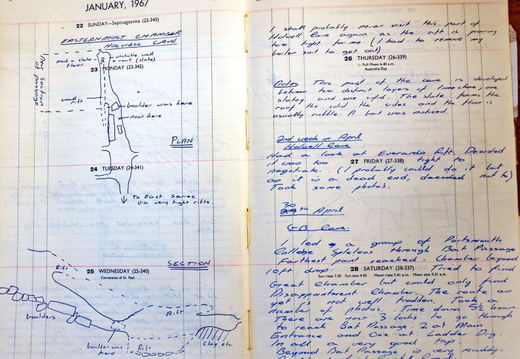 JANUARY, 1967
22 SUNDAY—Septuagesima (22-343)
EASTERNMOST CHAMBER
HOLWELL CAVE
unstable wall
& roof (slate)
23 MONDAY (23-342)
small rift
boulder was here
now here
PLAN
24 TUESDAY (24-341)
To East Series
via very tight rifts.
SECTION
25 WEDNESDAY (25-340)
Conversion of St. Paul
Rift
boulders
Rift
boulder was
here
Rift
Clay etc
I shall probably never visit this part of
Holwell Cave again as the rift is proving
too tight for me (I had to remove my
boiler suit to get out)
26 THURSDAY (26-339)
Full Moon 6.40 a.m.
Australia Day
Note: This part of the cave is developed
between two distinct layers of limestone, one
slatey and one not. The slate forms the
roof, the solid the sides and the floor is
usually rubble. A bat was noticed.
2nd week in April
Holwell Cave
Had a look at Everards rift. Decided
it was too tight to
27 FRIDAY (27-338)
negotiate. (I probably could do it but
as it is a dead end, decided not to)
Took some photos.
30th April
GB Cave
I led a group of Portsmouth
College Speleos through Bat Passage
Farthest point reached - Chamber beyond
10ft drop. Tried to find
28 SATURDAY (28-337)
Great Chamber but could only find
Disappointment Chamber. The route as
yet is not well trodden. Took a
number of photos. Time down 3½ hours
There are 3 locks to go through
to reach Bat Passage 2 at Main
Entrance and one at Ladder Dig.
In all a very good trip.
Beyond Bat Passage is very muddy.